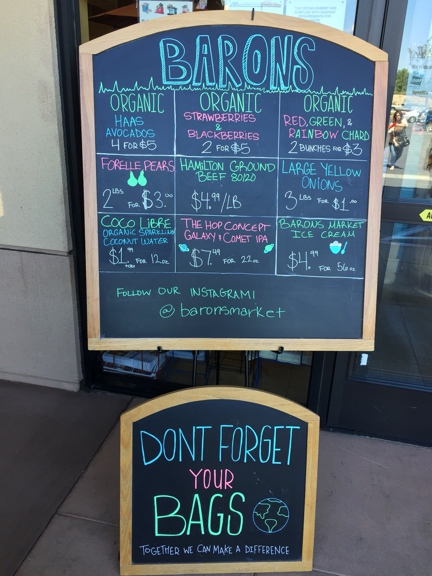 BARONS
ORGANIC
HAAS
AVOCADOS
4 FOR $5
ORGANIC
STRAWBERRIES
&
BLACKBERRIES
2 FOR $5
ORGANIC
RED, GREEN, &
RAINBOW CHARD
2 BUNCHES FOR $3
FORELLE PEARS
2 LBS FOR $3.00
HAMILTON GROUND
BEEF 80/20
$4.99/LB
LARGE YELLOW
ONIONS
3 LBS FOR $1.00
COCO LIBRE
ORGANIC SPARKLING
COCONUT WATER
$1.99 FOR 12 OZ
THE HOP CONCEPT
GALAXY & COMET IPA
$7.49 FOR 22 OZ
BARONS MARKET
ICE CREAM
$4.99 FOR 56 OZ
FOLLOW OUR INSTAGRAM!
@baronsmarket
DONT FORGET
YOUR
BAGS
TOGETHER WE CAN MAKE A DIFFERENCE